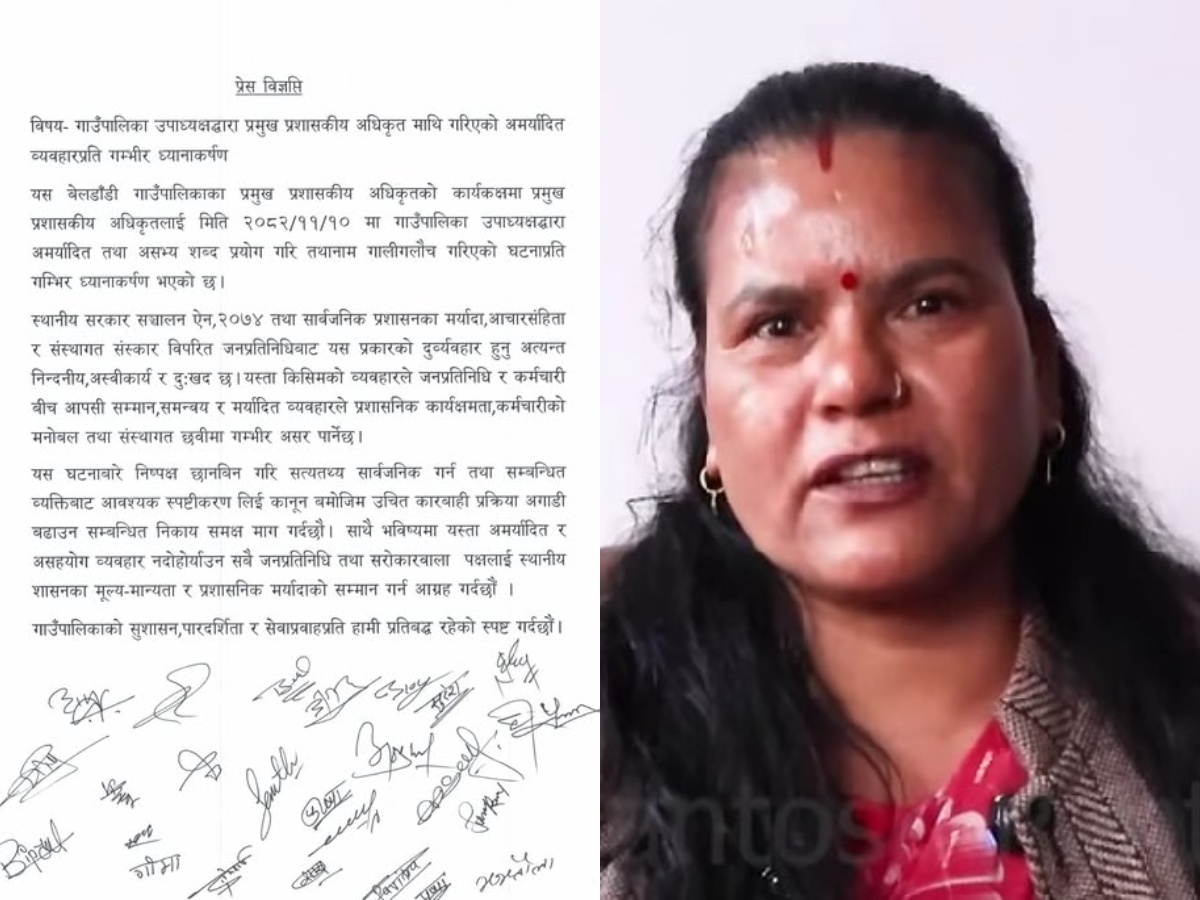 प्रेस विज्ञप्ति
विषय- गाउँपालिका उपाध्यक्षद्धारा प्रमुख प्रशासकीय अधिकृत माथि गरिएको अमर्यादित
व्यवहारप्रति गम्भीर ध्यानाकर्षण
यस बेलडाँडी गाउँपालिकाका प्रमुख प्रशासकीय अधिकृतको कार्यकक्षमा प्रमुख
प्रशासकीय अधिकृतलाई मिति २०८२/११/१० मा गाउँपालिका उपाध्यक्षद्धारा
अमर्यादित तथा असभ्य शब्द प्रयोग गरि तथानाम गालीगलौच गरिएको घटनाप्रति
गम्भिर ध्यानाकर्षण भएको छ।
स्थानीय सरकार सञ्चालन ऐन,२०७४ तथा सार्वजनिक प्रशासनका मर्यादा,आचारसंहिता
र संस्थागत संस्कार विपरित जनप्रतिनिधिबाट यस प्रकारको दुर्व्यवहार हुनु अत्यन्त
निन्दनीय,अस्वीकार्य र दुःखद छ।यस्ता किसिमको व्यवहारले जनप्रतिनिधि र कर्मचारी
बीच आपसी सम्मान,समन्वय र मर्यादित व्यवहारले प्रशासनिक कार्यक्षमता,कर्मचारीको
मनोबल तथा संस्थागत छवीमा गम्भीर असर पार्नेछ।
यस घटनाबारे निष्पक्ष छानविन गरि सत्यतथ्य सार्वजनिक गर्न तथा सम्बन्धित
व्यक्तिबाट आवश्यक स्पष्टीकरण लिई कानून बमोजिम उचित कारबाही प्रक्रिया अगाडी
बढाउन सम्बन्धित निकाय समक्ष माग गर्दछौ। साथै भविष्यमा यस्ता अमर्यादित र
असहयोग व्यवहार नदोहोर्याउन सबै जनप्रतिनिधि तथा सरोकारबाला पक्षलाई स्थानीय
शासनका मूल्य-मान्यता र प्रशासनिक मर्यादाको सम्मान गर्न आग्रह गर्दछौं ।
गाउँपालिकाको सुशासन,पारदर्शिता र सेवाप्रवाहप्रति हामी प्रतिबद्ध रहेको स्पष्ट गर्दछौं।
गीमा